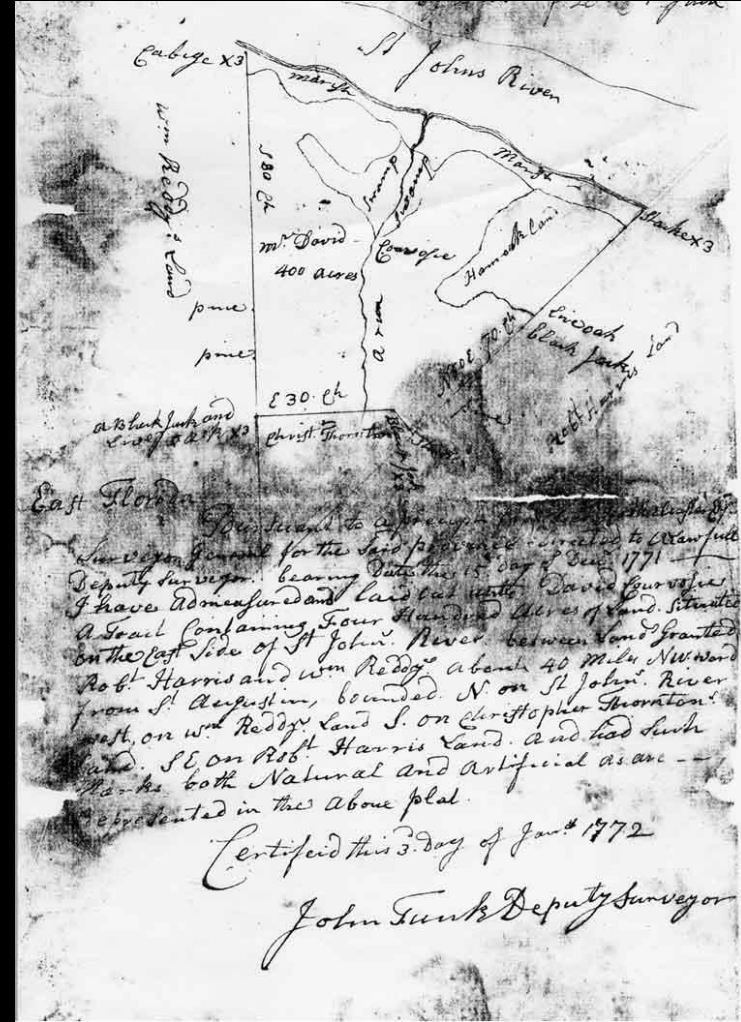 St Johns River
Cabige X3
Marsh
Marsh
Wm Reddy's Land
S 80 Ch
Swamp
Swamp
Stake X3
mr David
Courvosie
400 acres
Hamock Land
pine
a run
pine
Liveoak
Black Jack
N 40 E 70 Ch
Robt Harris Land
E 30 Ch
a Black Jack and
Live oak X3
Christ. Thornton
East Florida
Pursuant to a precept from
Surveyor General for the Said province directed to a Lawfull
Deputy Surveyor. bearing Date the 15 day of Decr 1771
I have admeasured and laid out unto David Courvosie
A Tract Containing Four Hundred Acres of Land. Situated
on the East Side of St Johns. River. between Lands Granted
Robt Harris and Wm Reddys about 40 Miles NW ward
from St Augustin, bounded. N. on St Johns. River
west, on Wm Reddys Land S. on Christopher Thorntons.
Land. SE, on Robt Harris Land. And had Such
Marks both Natural and Artificial as are —
represented in the above plat.
Certifeid this 3. Day of Jany 1772
John Funk Deputy Surveyor